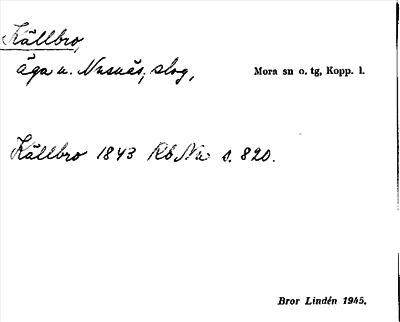 Källbro,
äga u. Nusnäs, skog, Mora sn o. tg, Kopp. l.
Källbro 1843 Rb Nu s. 820.
Bror Lindén 1945.